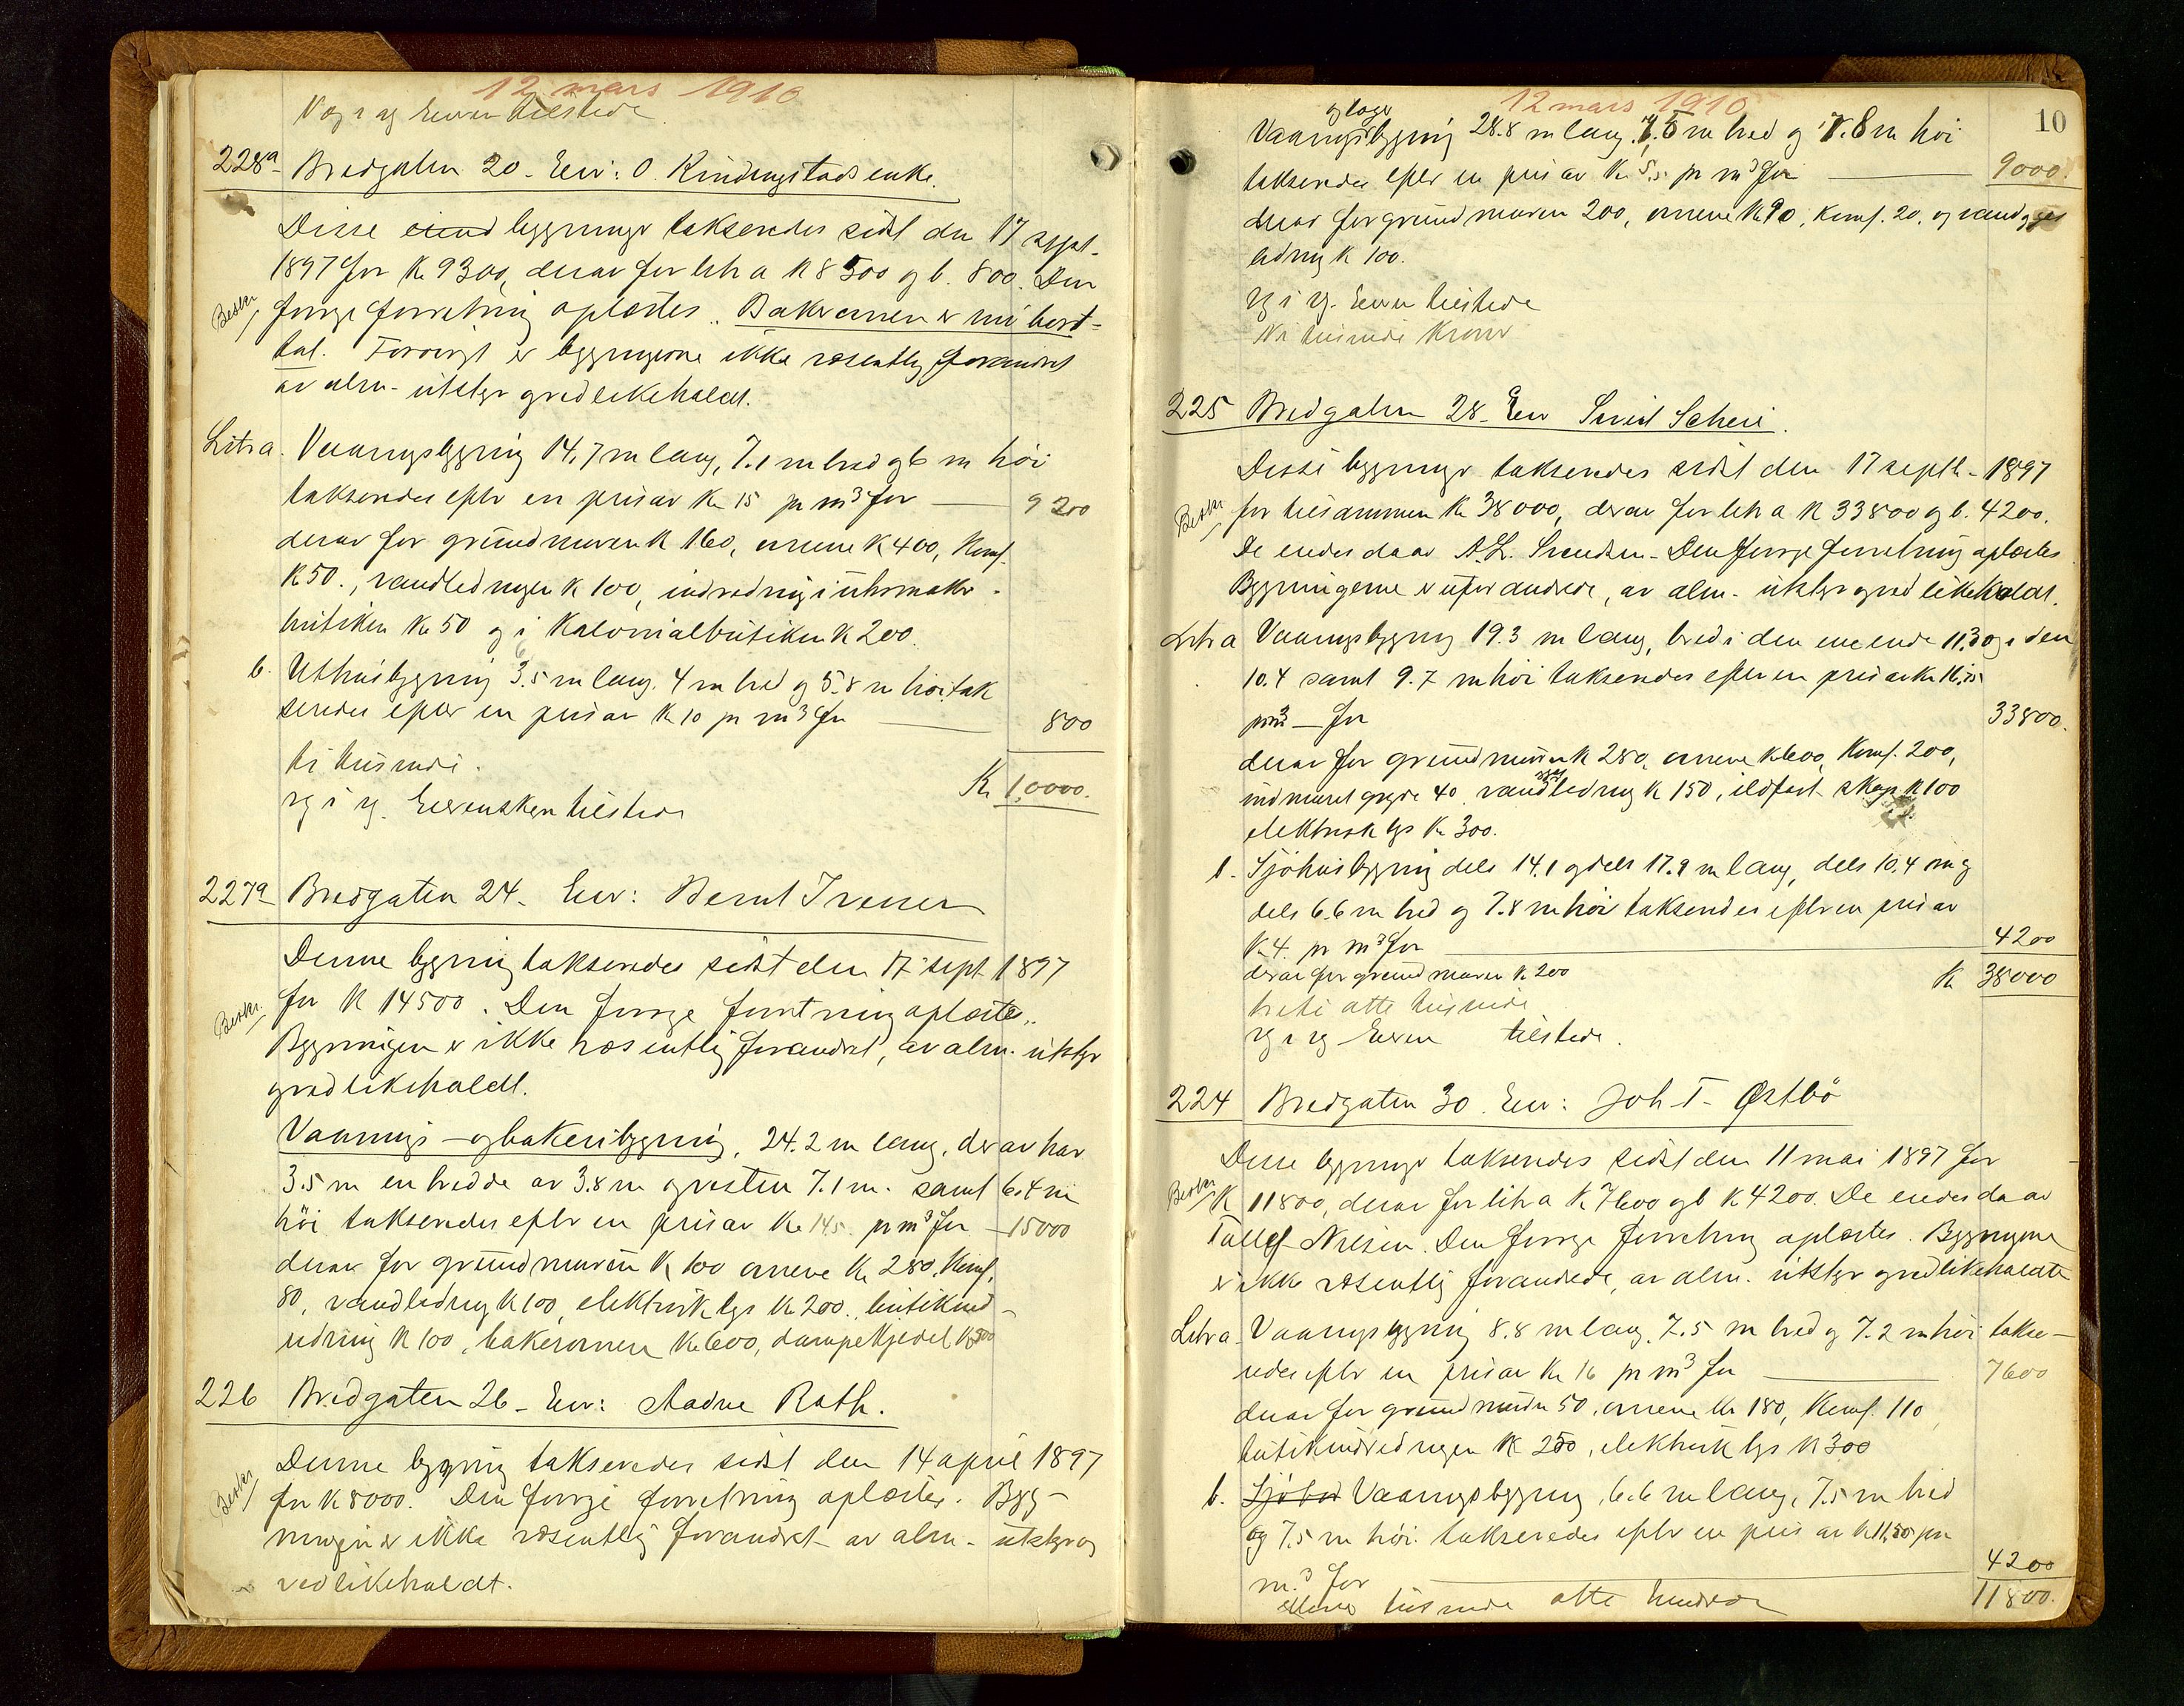 12 mars 1910
V og i vg Eieren tilstede
228a Bredgaten 20 - Eier: O. Kindingstads enke.
Disse eiend bygninger taksertes sidst den 17 sept.
1897 for Kr 9300, derav for litr a K 8500 og b. 800. Den
Beskr. forrige forretning oplæstes. Bakerovnen er nu bort-
tat. Forøvrigt er bygningerne ikke væsentlig forandret
av alm. utstyr og vedlikeholdt.
Litr a. Vaaningsbygning 14,7 m lang, 7.1 m bred og 6 m høi
takseredes efter en pris av Kr 15 pr m³ for 9200
derav for grundmuren K 160, ovnene K 400, Komf.
K 50., vandledningen K 100, indredning i uhrmaker-
butiken Kr 50 og i Kolonialbutiken K 200.
b. Uthusbygning 3.5 m lang, 4 m bred og 5.8 m høi tak
seredes efter en pris av K 10 pr m³ for 800
ti tusinde. Kr 10000.
vg i vg. Eierinsken tilstede
227a Bredgaten 24 - Eier: Bernt Iversen
Denne bygning takseredes sidst den 17 sept 1897
Beskr. for K 14500. Den forrige forretning oplæstes.
Bygningen er ikke væsentlig forandret, av alm. utstyr
og vedlikeholdt.
Vaanings- og bakeribygning, 24.2 m lang, derav har
3.5 m en bredde av 3.8 m og resten 7.1 m. samt 6.4 m
høi takseredes efter en pris av Kr 14.5 pr m³ for 15000
derav for grundmuren K 100 ovnene Kr 280, Komf.
80, vandledning K 100, elektrisk lys Kr 200. butikind-
redning K 100, bakerovnen Kr 600, dampekjedel K 500
226 Bredgaten 26 - Eier: Aadne Rath.
Denne bygning takseredes sidst den 14 april 1897
Beskr. for K 8000. Den forrige forretning oplæstes. Byg-
ningen er ikke væsentlig forandret av alm. utstyr og
vedlikeholdt.
12 mars 1910
10
og lager
Vaaningsbygning 28.8 m lang, 7.5 m bred og 7.8 m høi
takseredes efter en pris av Kr 5,5 pr m³ for 9000.
derav for grundmuren 200, ovnene K 90, Komf. 20, og vand og gas
ledning K 100.
vg i vg. Eieren tilstede
Ni tusinde Kroner
225 Bredgaten 28 - Eier Sivert Scheie.
Disse bygninger takseredes sidst den 17 septb - 1897
Beskr. for tilsammen Kr 38000, derav for litr a K 33800 og b. 4200.
De eiedes da av A. L. Svendsen - Den forrige forretning oplæstes
Bygningerne er uforandrede, av alm. utstyr og vedlikeholdt.
Litr a Vaaningsbygning 19.3 m lang, bred i den ene ende 11,30 og i den
10.4 samt 9.7 m høi takseredes efter en pris av Kr 16,25
pr m³ - for 33800.
derav for grundmuren K 280, ovnene K 600, Komf. 200,
indmuret gryte 40, vandledning K 150, ildfast skap K 100
elektrisk lys Kr 300.
b. Sjøhusbygning dels 14.1 og dels 17.9 m lang, dels 10.4 m og
dels 6.6 m bred og 7.8 m høi takseredes efter en pris av
K 4 pr m³ for 4200
derav for grundmuren K 200 K 38000
tretti otte tusinde
vg i vg Eieren tilstede.
224 Bredgaten 30. Eier: Joh. T. Østbö
Disse bygninger takseredes sidst den 11 mai 1897 for
Beskr. K 11800, derav for litr a K 7600 og b K 4200. De eiedes da av
Tallef Nilsen. Den forrige forretning oplæstes. Bygningerne
er ikke væsentlig forandrede, av alm. utstyr og vedlikeholdte
Litr a. Vaaningsbygning 8.8 m lang, 7.5 m bred og 7.2 m høi takse-
redes efter en pris av Kr 16 pr m³ for 7600
derav for grundmuren 50, ovnene Kr 180, Komf. 110
butikindredningen K 250, elektrisk lys K 300
b. Sjøbod Vaaningsbygning, 6.6 m lang, 7.5 m bred
og 7.5 m høi takseredes efter en pris av K 11,50 pr
m.³ for 4200
elleve tusinde otte hundrede 11800.